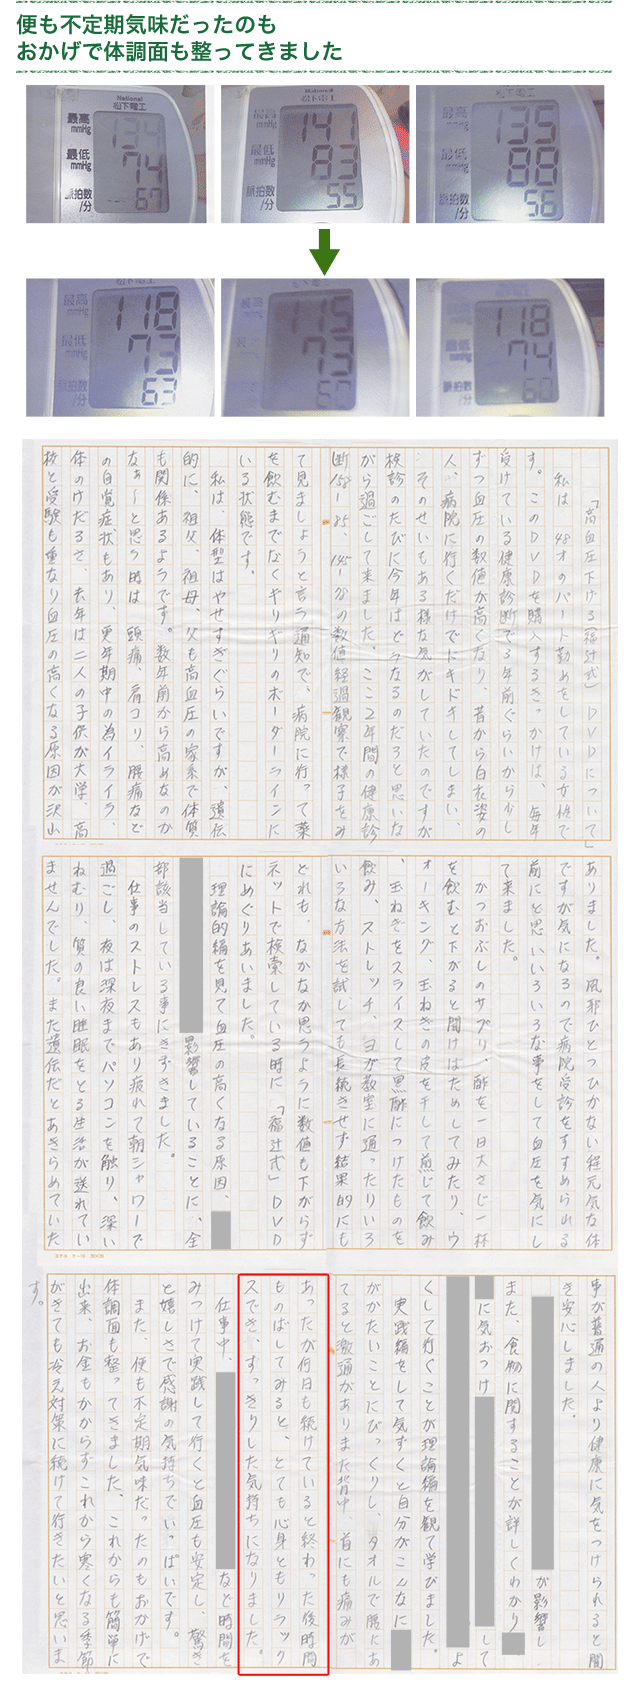 便も不定期気味だったのも
おかげで体調面も整ってきました
National
松下電工
最高
mmHg
134
最低
mmHg
74
脈拍数
/分
67
National
松下電工
最高
mmHg
141
最低
mmHg
83
脈拍数
/分
55
松下電工
最高
mmHg
135
最低
mmHg
88
脈拍数
/分
56
最高
mmHg
118
最低
mmHg
73
脈拍数
/分
63
最高
mmHg
115
73
60
最高
mmHg
118
74
脈拍数
/分
60
「高血圧下げる(福辻式)DVDについて」
私は、48才のパート勤めをしている女性で
す。このDVDを購入するきっかけは、毎年
受けている健康診断で3年前ぐらいから少し
ずつ血圧の数値が高くなり、昔から白衣姿の
人、病院に行くだけでドキドキしてしまい、
そのせいもある様な気がしていたのですが
検診のたびに今年はどうなるのだろと思いな
がら過ごして来ました。ここ2年間の健康診
断158ー85、145ー の数値経過観察で様子をみ
て見ましょうと言う通知で、病院に行って薬
を飲むまでなくギリギリのボーダーラインに
いる状態です。
私は、体型はやせすぎぐらいですが、遺伝
的に、祖父、祖母、父も高血圧の家系で体質
も関係あるようです。数年前から高めなのか
なぁ〜と思う時は、頭痛、肩コリ、腰痛など
の自覚症状もあり、更年期中の為イライラ、
体のけだるさ、去年は二人の子供が大学、高
校と受験も重なり血圧の高くなる原因が沢山
ありました。風邪ひとつひかない程元気な体
ですが気になるので病院受診をすすめられる
前にと思いいろいろな事をして血圧を気にし
て来ました。
かつおぶしのサプリ、酢を一日大さじ一杯
を飲むと下がると聞けばためしてみたり、ウ
ォーキング、玉ねぎの皮を干して煎じて飲み
、玉ねぎをスライスして黒酢につけたものを
飲み、ストレッチ、ヨガ教室に通ったりいろ
いろな方法を試しても長続きせず結果的にも
どれも、なかなか思うように数値も下がらず
ネットで検索している時に、「福辻式」DVD
にめぐりあいました。
理論的編を見て血圧の高くなる原因、
影響していることに、全
部該当している事にきずきました。
仕事のストレスもあり疲れて朝シャワーで
過ごし、夜は深夜までパソコンを触り、深い
ねむり、質の良い睡眠をとる生活が送れてい
ませんでした。また遺伝だとあきらめていた
事が普通の人より健康に気をつけられると聞
き安心しました。
が影響し
また、食物に関することが詳しくわかり
に気おつけ
して
よ
くして行くことが理論編を観て学びました。
実践編をして気ずくと自分がこんなに
がかたいことにびっくりし、タオルで腰にあ
てると激痛がありまた背中、首にも痛みが
あったが何日も続けていると終わった後時間
ものばしてみると、とても心身ともリラック
スでき、すっきりした気持ちになりました。
仕事中、
など時間を
みつけて実践して行くと血圧も安定し、驚き
と嬉しさで感謝の気持ちでいっぱいです。
また、便も不定期気味だったのもおかげで
体調面も整ってきました。これからも簡単に
出来、お金もかからずこれから寒くなる季節
がきても冷え対策に続けて行きたいと思いま
す。